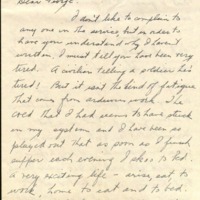 Dear George:
I don't like to complain to
any one in the service, but in order to
have you understand why I haven't
written, I must tell you I have been very
tired. A civilian telling a soldier he's
tired! But it isn't the kind of fatigue
that comes from arduous work. The
cold that I had seems to have stuck
on my system and I have been so
played out that as soon as I finish
supper each evening I also to bed.
A very exciting life - arise, eat to
work, home to eat and to bed.